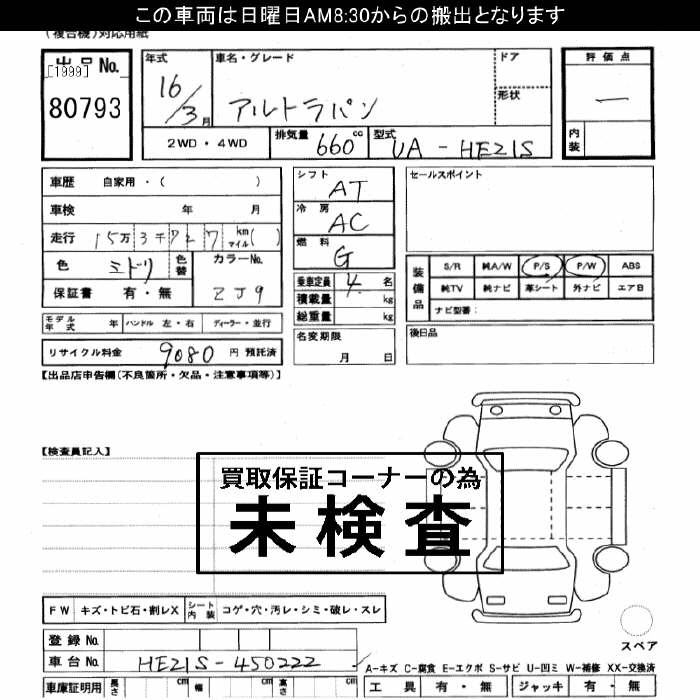 この車両は日曜日AM8:30からの搬出となります
(複合機)対応用紙
出品No.
[1999]
80793
年式
16/3月
車名・グレード
アルトラパン
ドア
形状
2WD・4WD
排気量
660cc
型式
UA-HE21S
評価点
一
内装
車歴 自家用・( )
車検 年 月
走行 15万3千727 kmマイル( )
色 ミドリ 色替
カラーNo.
ZJ9
保証書 有・無
モデル年式 年 ハンドル 左・右 ディーラー・並行
リサイクル料金 9080 円 預託済
シフト
AT
冷房
AC
燃料
G
乗車定員 4 名
積載量 kg
総重量 kg
名変期限
月 日
セールスポイント
装備品
S/R 純A/W P/S P/W ABS
純TV 純ナビ 革シート 外ナビ エアB
ナビ型番:
後日品
【出品店申告欄(不良箇所・欠品・注意事項等)】
【検査員記入】
買取保証コーナーの為
未検査
FW キズ・トビ石・割レX シート内装 コゲ・穴・汚レ・シミ・破レ・スレ
登録No.
車台No. HE21S-450222
車庫証明用 長さ cm 幅 cm 高さ cm
スペア
A-キズ C-腐食 E-エクボ S-サビ U-凹ミ W-補修 XX-交換済
工具 有・無 ジャッキ 有・無